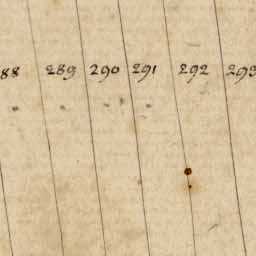 88 289 290 291 292 293